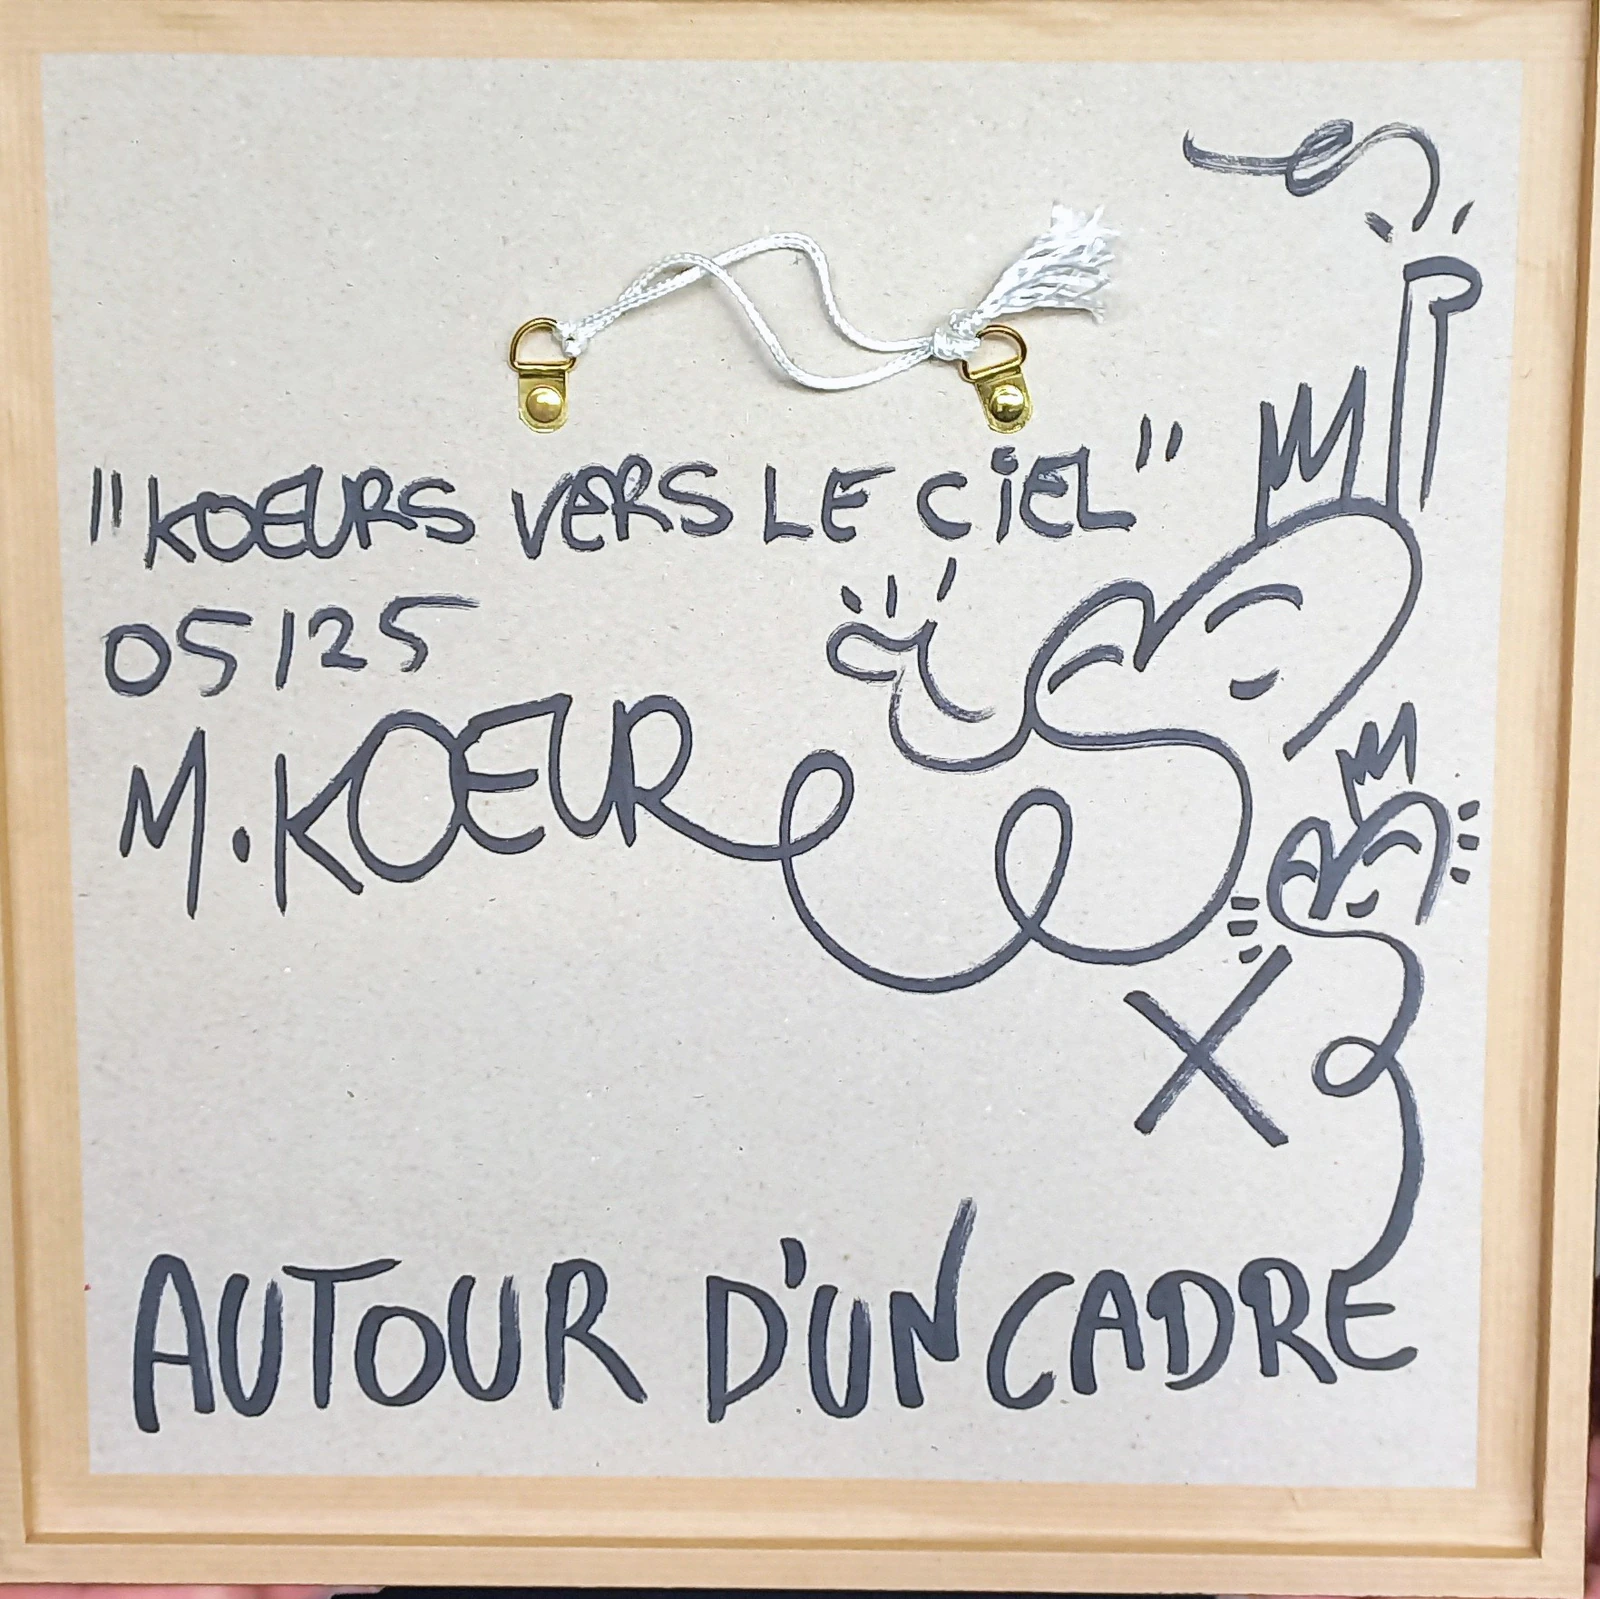 "KOEURS VERS LE CIEL"
05/25
M.KOEUR
X
AUTOUR D'UN CADRE